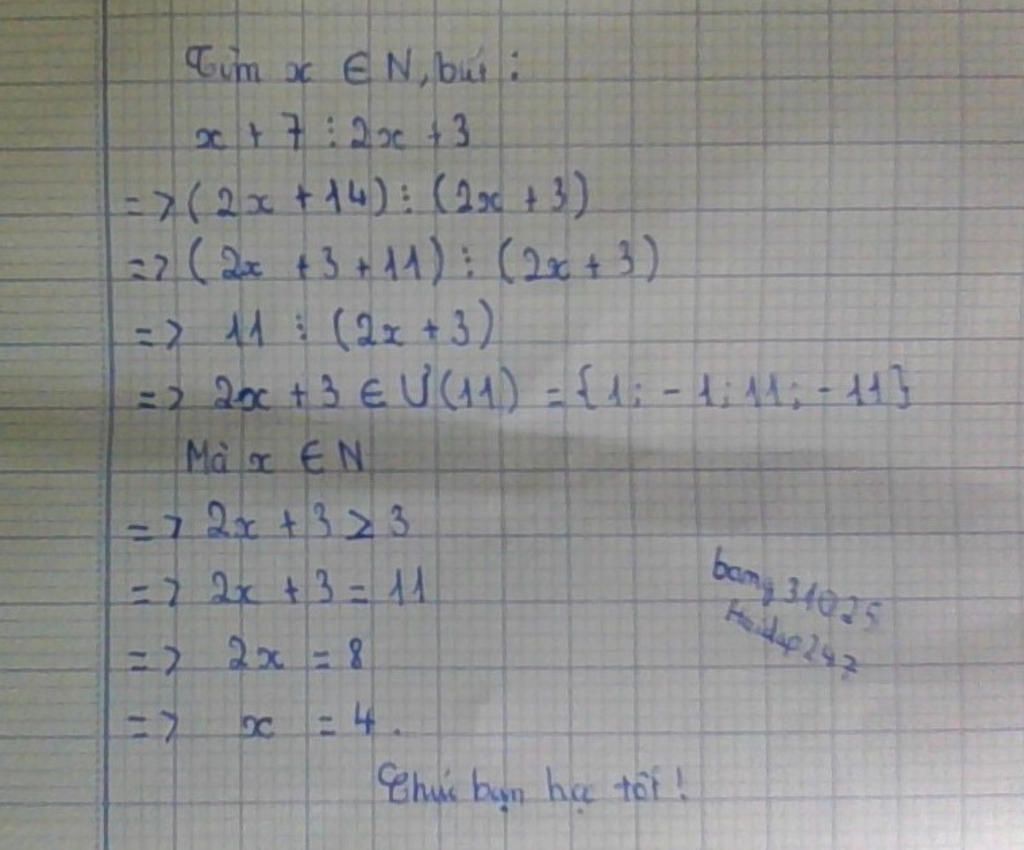 Tìm x ∈ N, biết :
x + 7 ⋮ 2x + 3
=> (2x + 14) ⋮ (2x + 3)
=> (2x + 3 + 11) ⋮ (2x + 3)
=> 11 ⋮ (2x + 3)
=> 2x + 3 ∈ Ư(11) = {1; -1; 11; -11}
Mà x ∈ N
=> 2x + 3 ≥ 3
=> 2x + 3 = 11
=> 2x = 8
=> x = 4.
Chúc bạn học tốt!